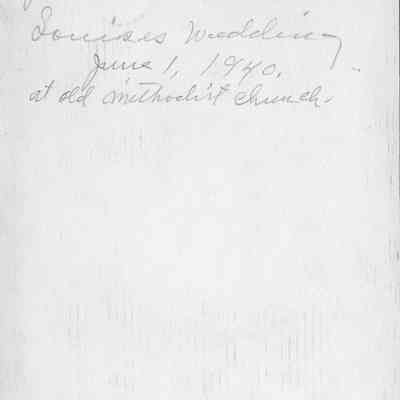 Louises Wedding
June 1, 1940.
at old methodist church.